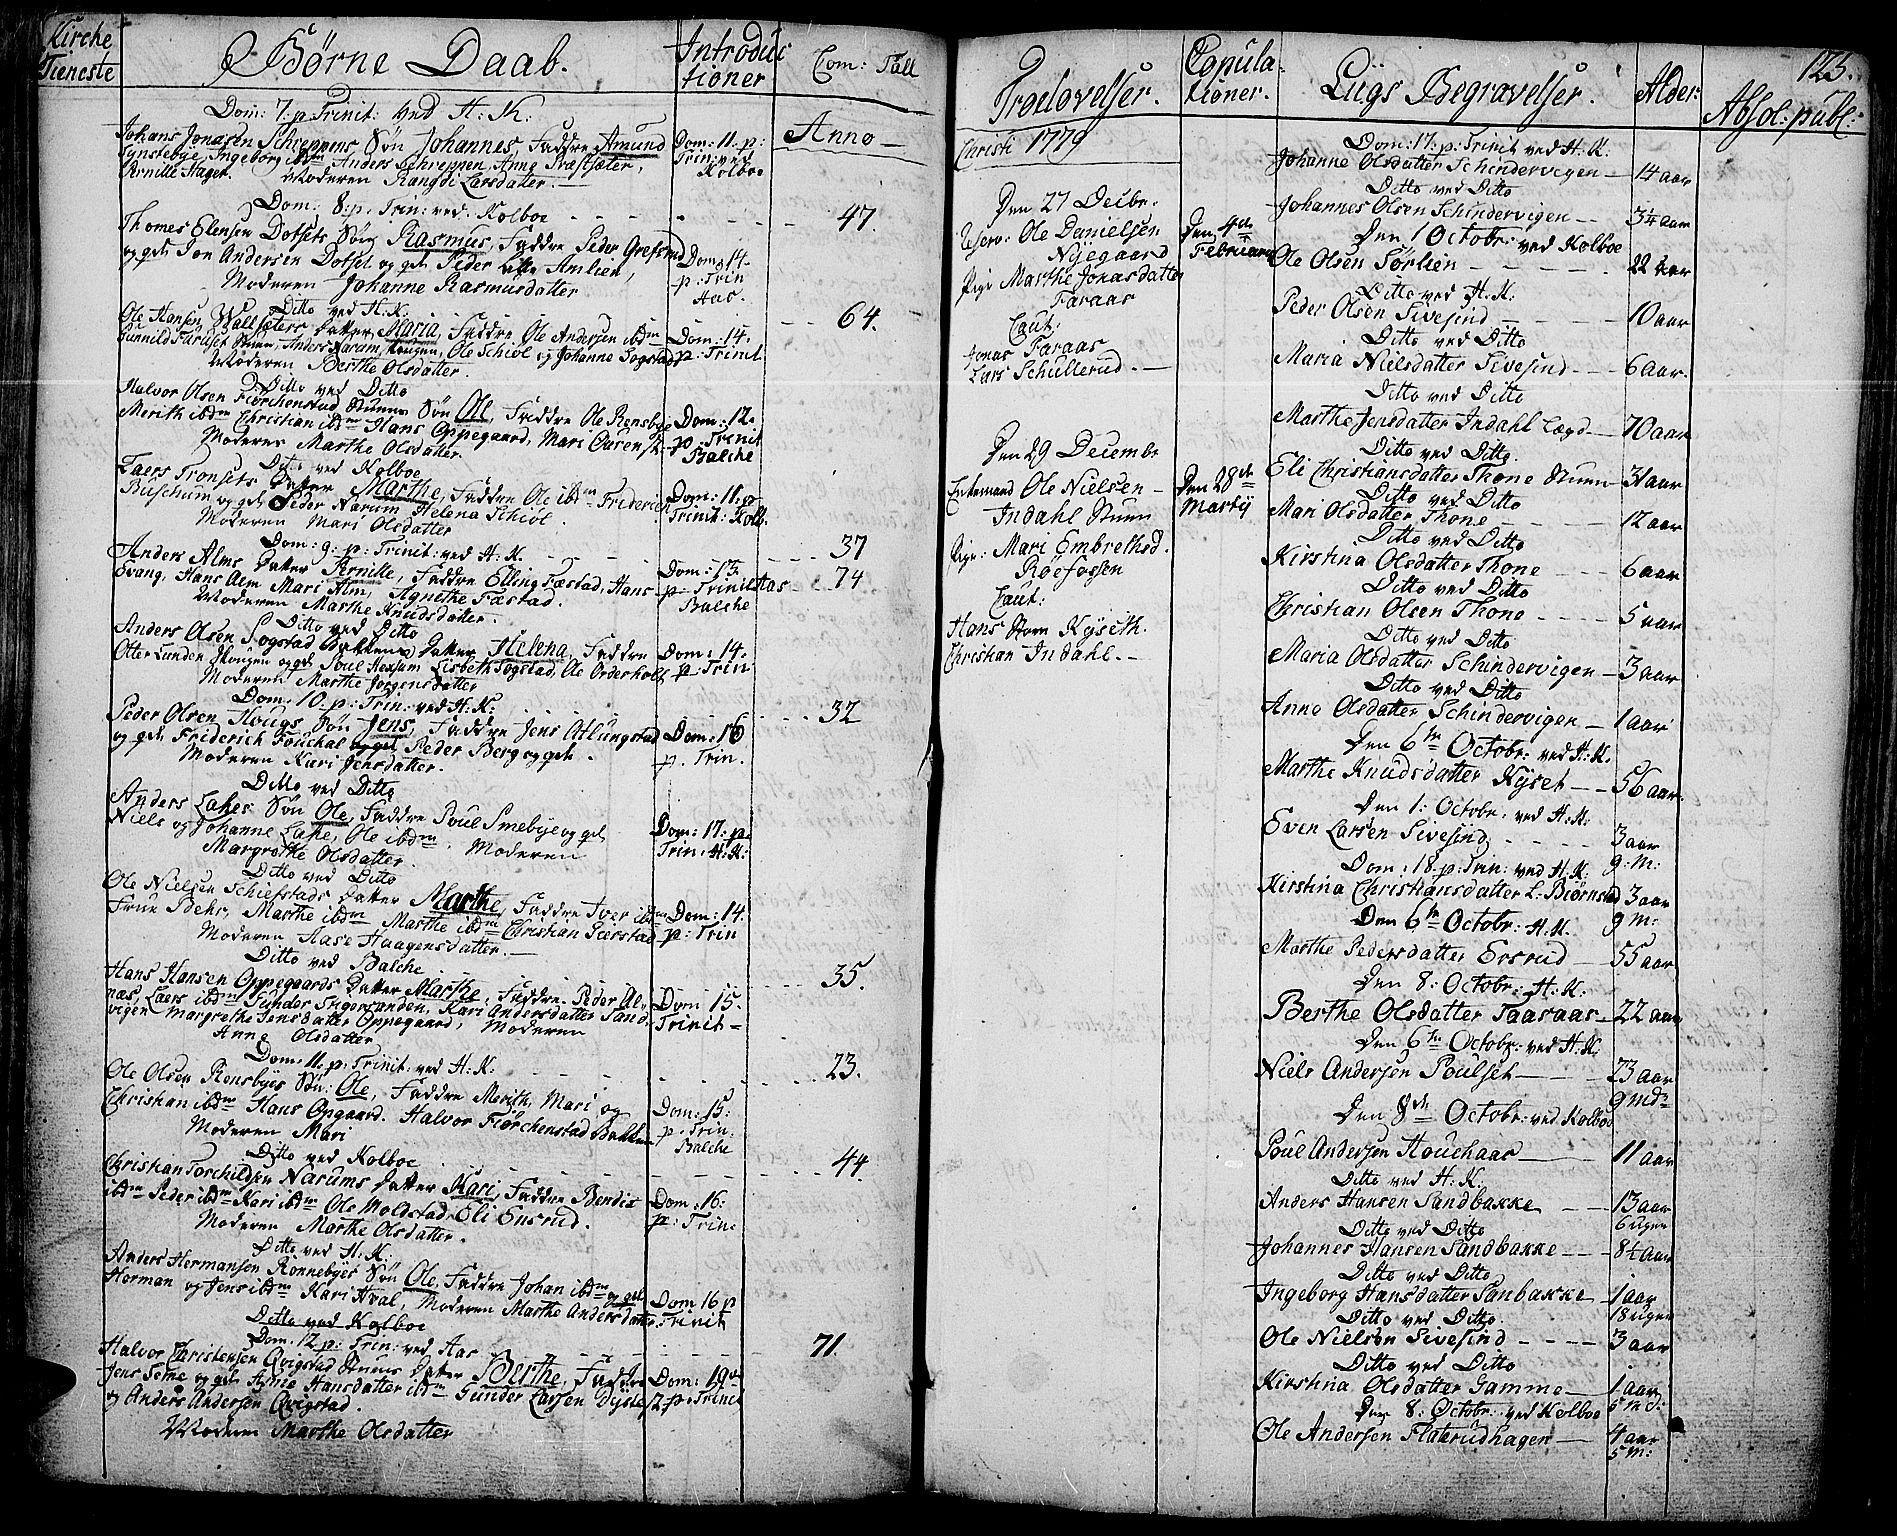 Kirche Tieneste
Børne Daab.
Introductioner
Com: Tall
Dom: 7: p: Trinit: ved H: K:
Anno
Johans Jonassen Schreppens Søn Johannes, Faddre Amund
Synstebye, Ingeborg ibdm Anders Schreppen, Anne Præstsæter,
Pernille Hager. Moderen Rangdi Larsdatter.
Dom: 11. p: Trin: ved Kolboe
Dom: 8: p. Trin: ved Kolboe
47.
Thomes Elensen Dotsets Søn Rasmus, Faddre Peder Grefsrud
og get Jon Andersen Dotset og get Peder Amlien,
Moderen Johanne Rasmusdatter
Dom: 14. p: Trin Aas.
Ditto ved H: K:
64.
Ole Hansen Wallsæters Datter Maria, Faddre Ole Andersen ibdm
Gunnild Furuset Stuen, Anders Narum, Hougen, Ole Schiøl og Johanne Sogstad
Moderen Berthe Olsdatter.
Dom: 14. p: Trinit
Ditto ved Ditto
Halvor Olsen Fiørchenstad Stuens Søn Ole, Faddre Ole Rensbye
Merith ibdm Christian ibdm Hans Oppegaard, Mari
Moderen Marthe Olsdatter.
Dom: 12. p: Trinit Balche
Ditto ved Kolboe
Laers Tronsets Datter Marthe, Faddre Ole ibdm Friderich
Buschum og get Peder Narum Helena Schiøl.
Moderen Mari Olsdatter
Dom: 11. p. Trinit: Kolb:
Dom: 9: p: Trinit: ved H: K.
37
Anders Alms Datter Pernille, Faddre Elling Fæstad, Hans
Evang, Hans Alm Mari Alm, Agnethe Fæstad.
Moderen Marthe Knudsdatter.
Dom: 13. p: Trinit Balche
Aas
74
Ditto ved Ditto
Anders Olsen Sogstad Bakkens Datter Helena, Faddre
Otter Lunden Hougen og get Poul Hexum Lisbeth Sogstad, Ole Orderholt
Moderen Marthe Jørgensdatter
Dom: 14. p. Trin
Dom. 10. p: Trin: ved H: K:
32
Peder Olsen Hougs Søn Jens, Faddre Jens Atlungstad
og get Friderich Fouchal og get Peder Berg og get.
Moderen Kari Jensdatter.
Dom: 16 p. Trin.
Ditto ved Ditto
Anders Lahes Søn Ole, Faddre Poul Smebye og get
Niels og Johanne Lahe, Ole ibdm. Moderen
Margrethe Olsdatter.
Dom: 17: p. Trin: H: K:
Ditto ved Ditto
Ole Nielsen Schiefstads Datter Marthe, Faddre Iver ibdm
Frue Behr, Marthe ibdm Marthe ibdm Christian Siørstad
Moderen Aase Haagensdatter.
Dom: 14. p: Trin
Ditto ved Balche
35.
Hans Hansen Oppegaards Datter Marthe, Faddre Peder Al-
næs, Laers ibdm Gunder Stigersanden, Kari Andersdatter Sand
vigen Margrethe Jensdatter Oppegaard, Moderen
Anne Olsdatter
Dom 15. Trinit
Dom. 11. p. Trinit. ved H: K:
23.
Ole Olsen Rensbyes Søn: Ole, Faddre Merith, Mari og
Christian ibdm Hans Opgaard. Halvor Fiørchenstad Bakken
Moderen Mari
Dom: 15: p: Trin. Balche
Ditto ved Kolboe
44.
Christian Torchildsen Narums Datter Kari, Faddre Bendix
ibdm Peder ibdm Kari ibdm Ole Molstad, Eli Ensrud.
Moderen Marthe Olsdatter.
Dom: 16: p: Trin:
Ditto ved H: K:
Anders Hermansen Rønnebyes Søn Ole, Faddre Johan ibdm og get
Herman og Jens ibdm Kari Hval, Moderen Marthe Andersdatter
Dom 16 p Trinit
Ditto ved Kolboe
Dom. 12. p: Trin: ved Aas
71.
Halvor Christensen Qvigstad Stuens Datter Berthe, Faddre
Jens og get Anne Hansdatter ibdm Gunder Larsen Dyste
og Anders Andersen Qvigstad.
Moderen Marthe Olsdatter
Dom: 19de p: Trinit
123.
Troelovelser.
Copulationer.
Liigs Begravelser.
Alder:
Absol: publ:
Christi 1779
Den 27 Decbr:
Reserv: Ole Danielsen
Nyegaard
Pige Marthe Jonasdatter
Faraas
Caut:
Jonas Faraas
Lars Schullerud.
Den 4de Februarii
Den 29 Decembr
Enkemand Ole Nielsen
Indahl Stuen
Pige: Mari Embrethsd.
Røefossen
Caut:
Hans Stom Kyseth.
Christian Indahl.
Den 28de Martij
Dom: 17: p: Trinit ved H: K:
Johanne Olsdatter Schindervigen 14 aar
Ditto ved Ditto
Johannes Olsen Schindervigen 3¼ aar
Den 1 Octobr: ved Kolboe
Ole Olsen Sørlien 22 aar
Ditto ved H: K:
Peder Olsen Sivesind 10 aar
Ditto ved Ditto
Maria Nielsdatter Sivesind 6 aar.
Ditto ved Ditto
Marthe Jensdatter Indahl Lægd 70 aar
Ditto ved Ditto.
Eli Christiansdatter Thone Stuen 31 aar
Ditto ved Ditto
Mari Olsdatter Thone 12 aar
Ditto ved Ditto
Kirstina Olsdatter Thone 6 aar
Ditto ved Ditto
Christian Olsen Thone 5 aar
Ditto ved Ditto
Maria Olsdatter Schindervigen 3 aar
Ditto ved Ditto
Anne Olsdatter Schindervigen 1 aar
Den 6te Octobr: ved H: K.
Marthe Knudsdatter Kyset 56 aar.
Den 1: Octobr: ved H: K:
Even Larsen Sivesind 3 aar 9: M:
Dom: 18. p: Trin: ved H: K:
Kirstina Christiansdatter L: Biørnstad 3 aar 9 M:
Den 6te Octobr: H: K.
Marthe Pedersdatter Ersrud 55 aar
Den 8: Octobr: H: K:
Berthe Olsdatter Faaraas 22 aar
Den 6te Octobr: ved H: K.
Niels Andersen Poulset 23 aar 9 mdr
Den 8de Octobr: ved Kolboe
Poul Andersen Houchaar 11 aar
Ditto ved H: K:
Anders Hansen Sandbakke 13 aar 6 uger
Ditto ved Ditto
Johannes Hansen Sandbakke 8¼ aar
Ditto ved Ditto
Ingeborg Hansdatter Sanbakke 1 aar 18 uger
Ditto ved Ditto.
Ole Nielsen Sivesind 3 aar
Ditto ved Ditto
Kirstina Olsdatter Gamme 1 aar 5 md:
Den 8: Octobr: ved Kolboe
Ole Andersen Flaterudhagen 4 aar 5 M: